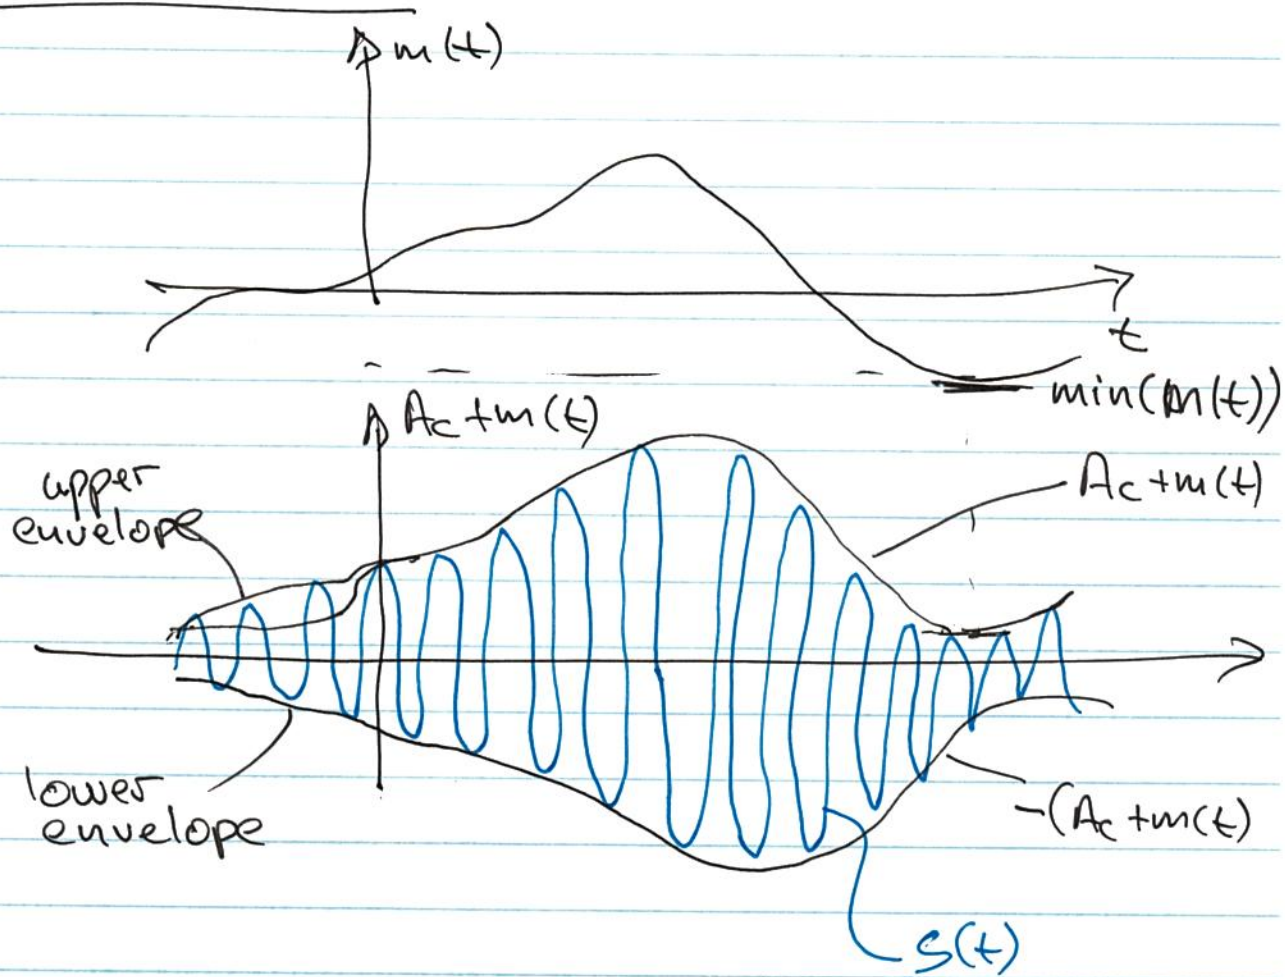 m(t)
t
min(m(t))
Ac+m(t)
upper
envelope
Ac+m(t)
lower
envelope
-(Ac+m(t)
S(t)